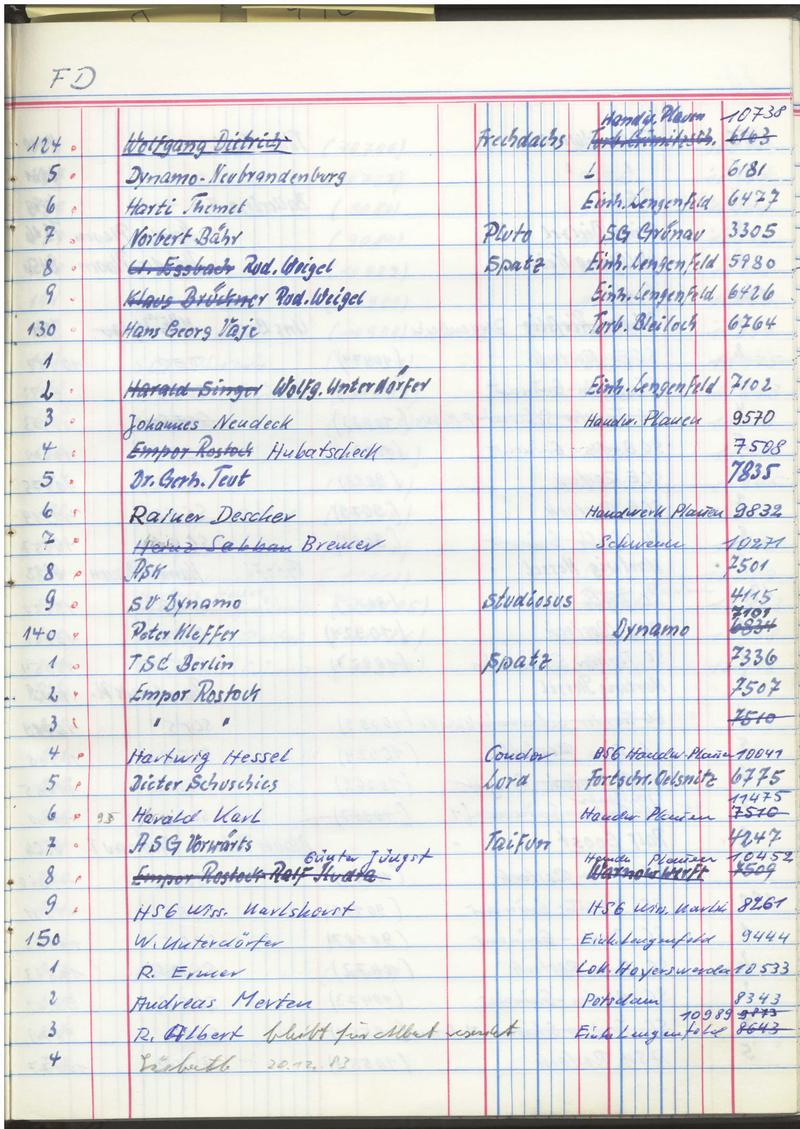 FD
Handw. Plauen 10738
124 Wolfgang Dietrich Frechdachs Turb. Crimitzsch. 6163
5 Dynamo-Neubrandenburg L 6181
6 Harti Themet Einh. Lengenfeld 6477
7 Norbert Bähr Pluto SG Grünau 3305
8 W. Essbach Rud. Weigel Spatz Einh. Lengenfeld 5980
9 Klaus Brückner Rud. Weigel Einh. Lengenfeld 6426
130 Hans Georg Vaje Turb. Bleiloch 6764
1
2 Harald Singer Wolfg. Unterdörfer Einh. Lengenfeld 7102
3 Johannes Neudeck Handw. Plauen 9570
4 Empor Rostock Hubatscheck 7508
5 Dr. Gerh. Teut 7835
6 Rainer Descher Handwerk Plauen 9832
7 Heinz Sabban Bremer Schwerin 10271
8 ASK 7501
9 SV Dynamo Studiosus 4115
7101
140 Peter Kleffer Dynamo 6834
1 TSC Berlin Spatz 7336
2 Empor Rostock 7507
3 " " 7510
4 Hartwig Hessel Condor BSG Handw. Plauen 10041
5 Dieter Schuschies Lord Fortschr. Oelsnitz 6775
11475
6 93 Harald Karl Handw Plauen 7510
7 ASG Vorwärts Taifun 4247
Günter Jüngst Handw Plauen 10452
8 Empor Rostock Ralf Warnowwerft 7509
9 HSG Wiss. Karlshorst HSG Wiss. Karlsh 8261
150 W. Unterdörfer Einh. Lengenfeld 9444
1 R. Ermer Lok. Hoyerswerda 10533
2 Andreas Merten Potsdam 8343
10989 9873
3 R. Albert bleibt für Albert Einh. Lengenfeld 8643
4 20.12.83